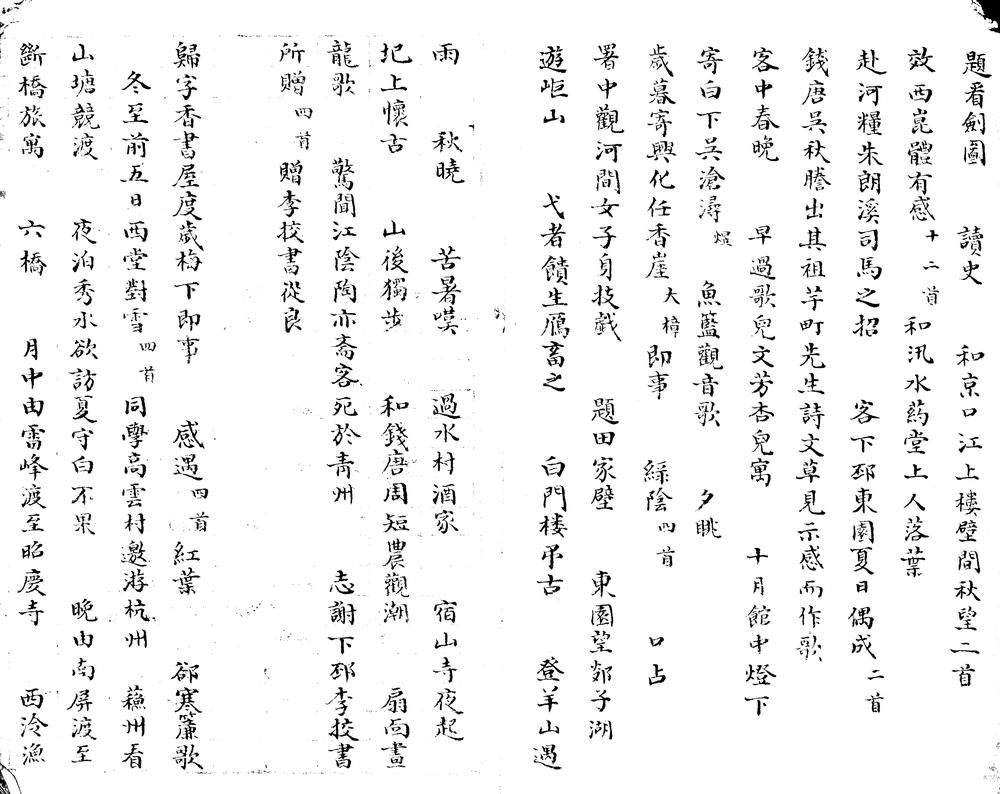 題看劍圖　讀史　和京口江上樓壁間秋望二首
效西崑體有感十二首　和汛水葯堂上人落葉
赴河糧朱朗溪司馬之招　客下邳東園夏日偶成二首
錢唐吳秋謄出其祖芋町先生詩文草見示感而作歌
客中春晚　早過歌兒文芳杏兒寓　十月館中燈下
寄白下吳滄潯熤　魚籃觀音歌　夕眺
歲暮寄興化任香崖大椿即事　綠陰四首　口占
署中觀河間女子身技戲　題田家壁　東園望郯子湖
遊岠山　弋者饋生鴈畜之　白門楼弔古　登羊山遇
雨　秋曉　苦暑嘆　過水村酒家　宿山寺夜起
圯上懷古　山後獨步　和錢唐周短農觀潮　扇面畫
龍歌　驚聞江陰陶亦斋客死於青州　志謝下邳李挍書
所贈四首　贈李挍書從良
歸字香書屋度歲梅下即事　感遇四首　紅葉　郤寒簾歌
冬至前五日西堂對雪四首　同學高雲村邀游杭州　蘓州看
山塘競渡　夜泊秀水欲訪夏守白不果　晚由南屏渡至
斷橋旅寓　六橋　月中由雷峰渡至昭慶寺　西泠漁